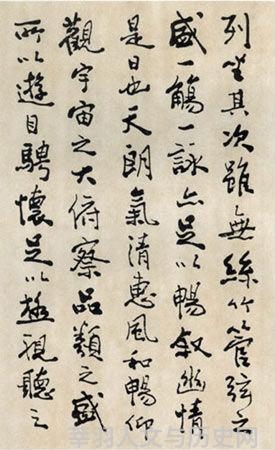 列坐其次雖無絲竹管弦之
盛一觴一詠亦足以暢敘幽情
是日也天朗氣清惠風和暢仰
觀宇宙之大俯察品類之盛
所以遊目騁懷足以極視聽之
羽人文与历史网